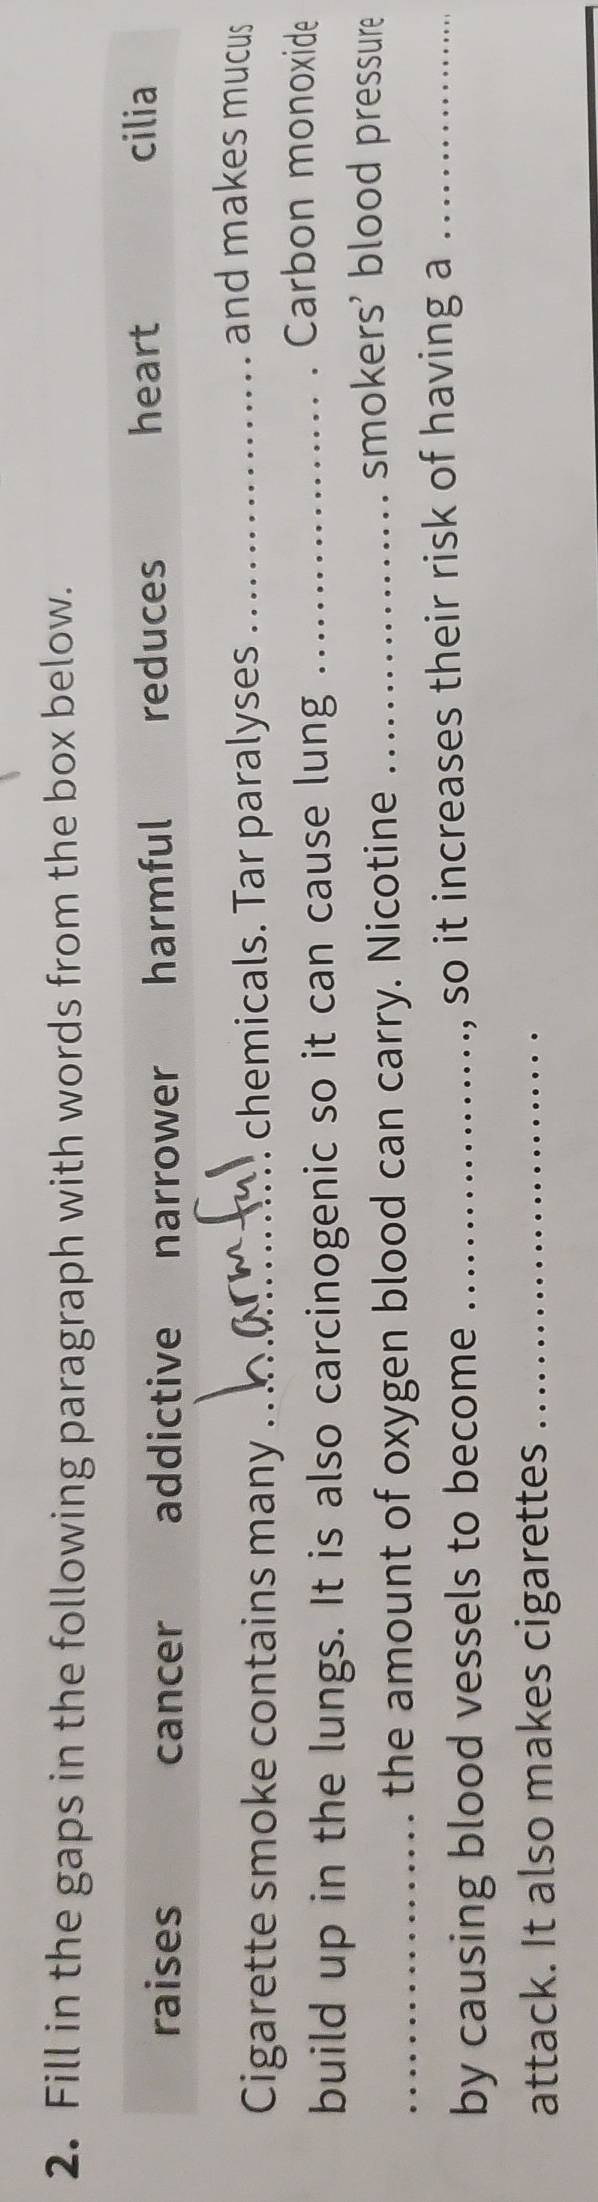 2. Fill in the gaps in the following paragraph with words from the box below.
raises cancer addictive narrower harmful reduces heart cilia
Cigarette smoke contains many ...harmful... chemicals. Tar paralyses .................... and makes mucus
build up in the lungs. It is also carcinogenic so it can cause lung .................... . Carbon monoxide
.................... the amount of oxygen blood can carry. Nicotine .................... smokers' blood pressure
by causing blood vessels to become ...................., so it increases their risk of having a ....................
attack. It also makes cigarettes ..............................